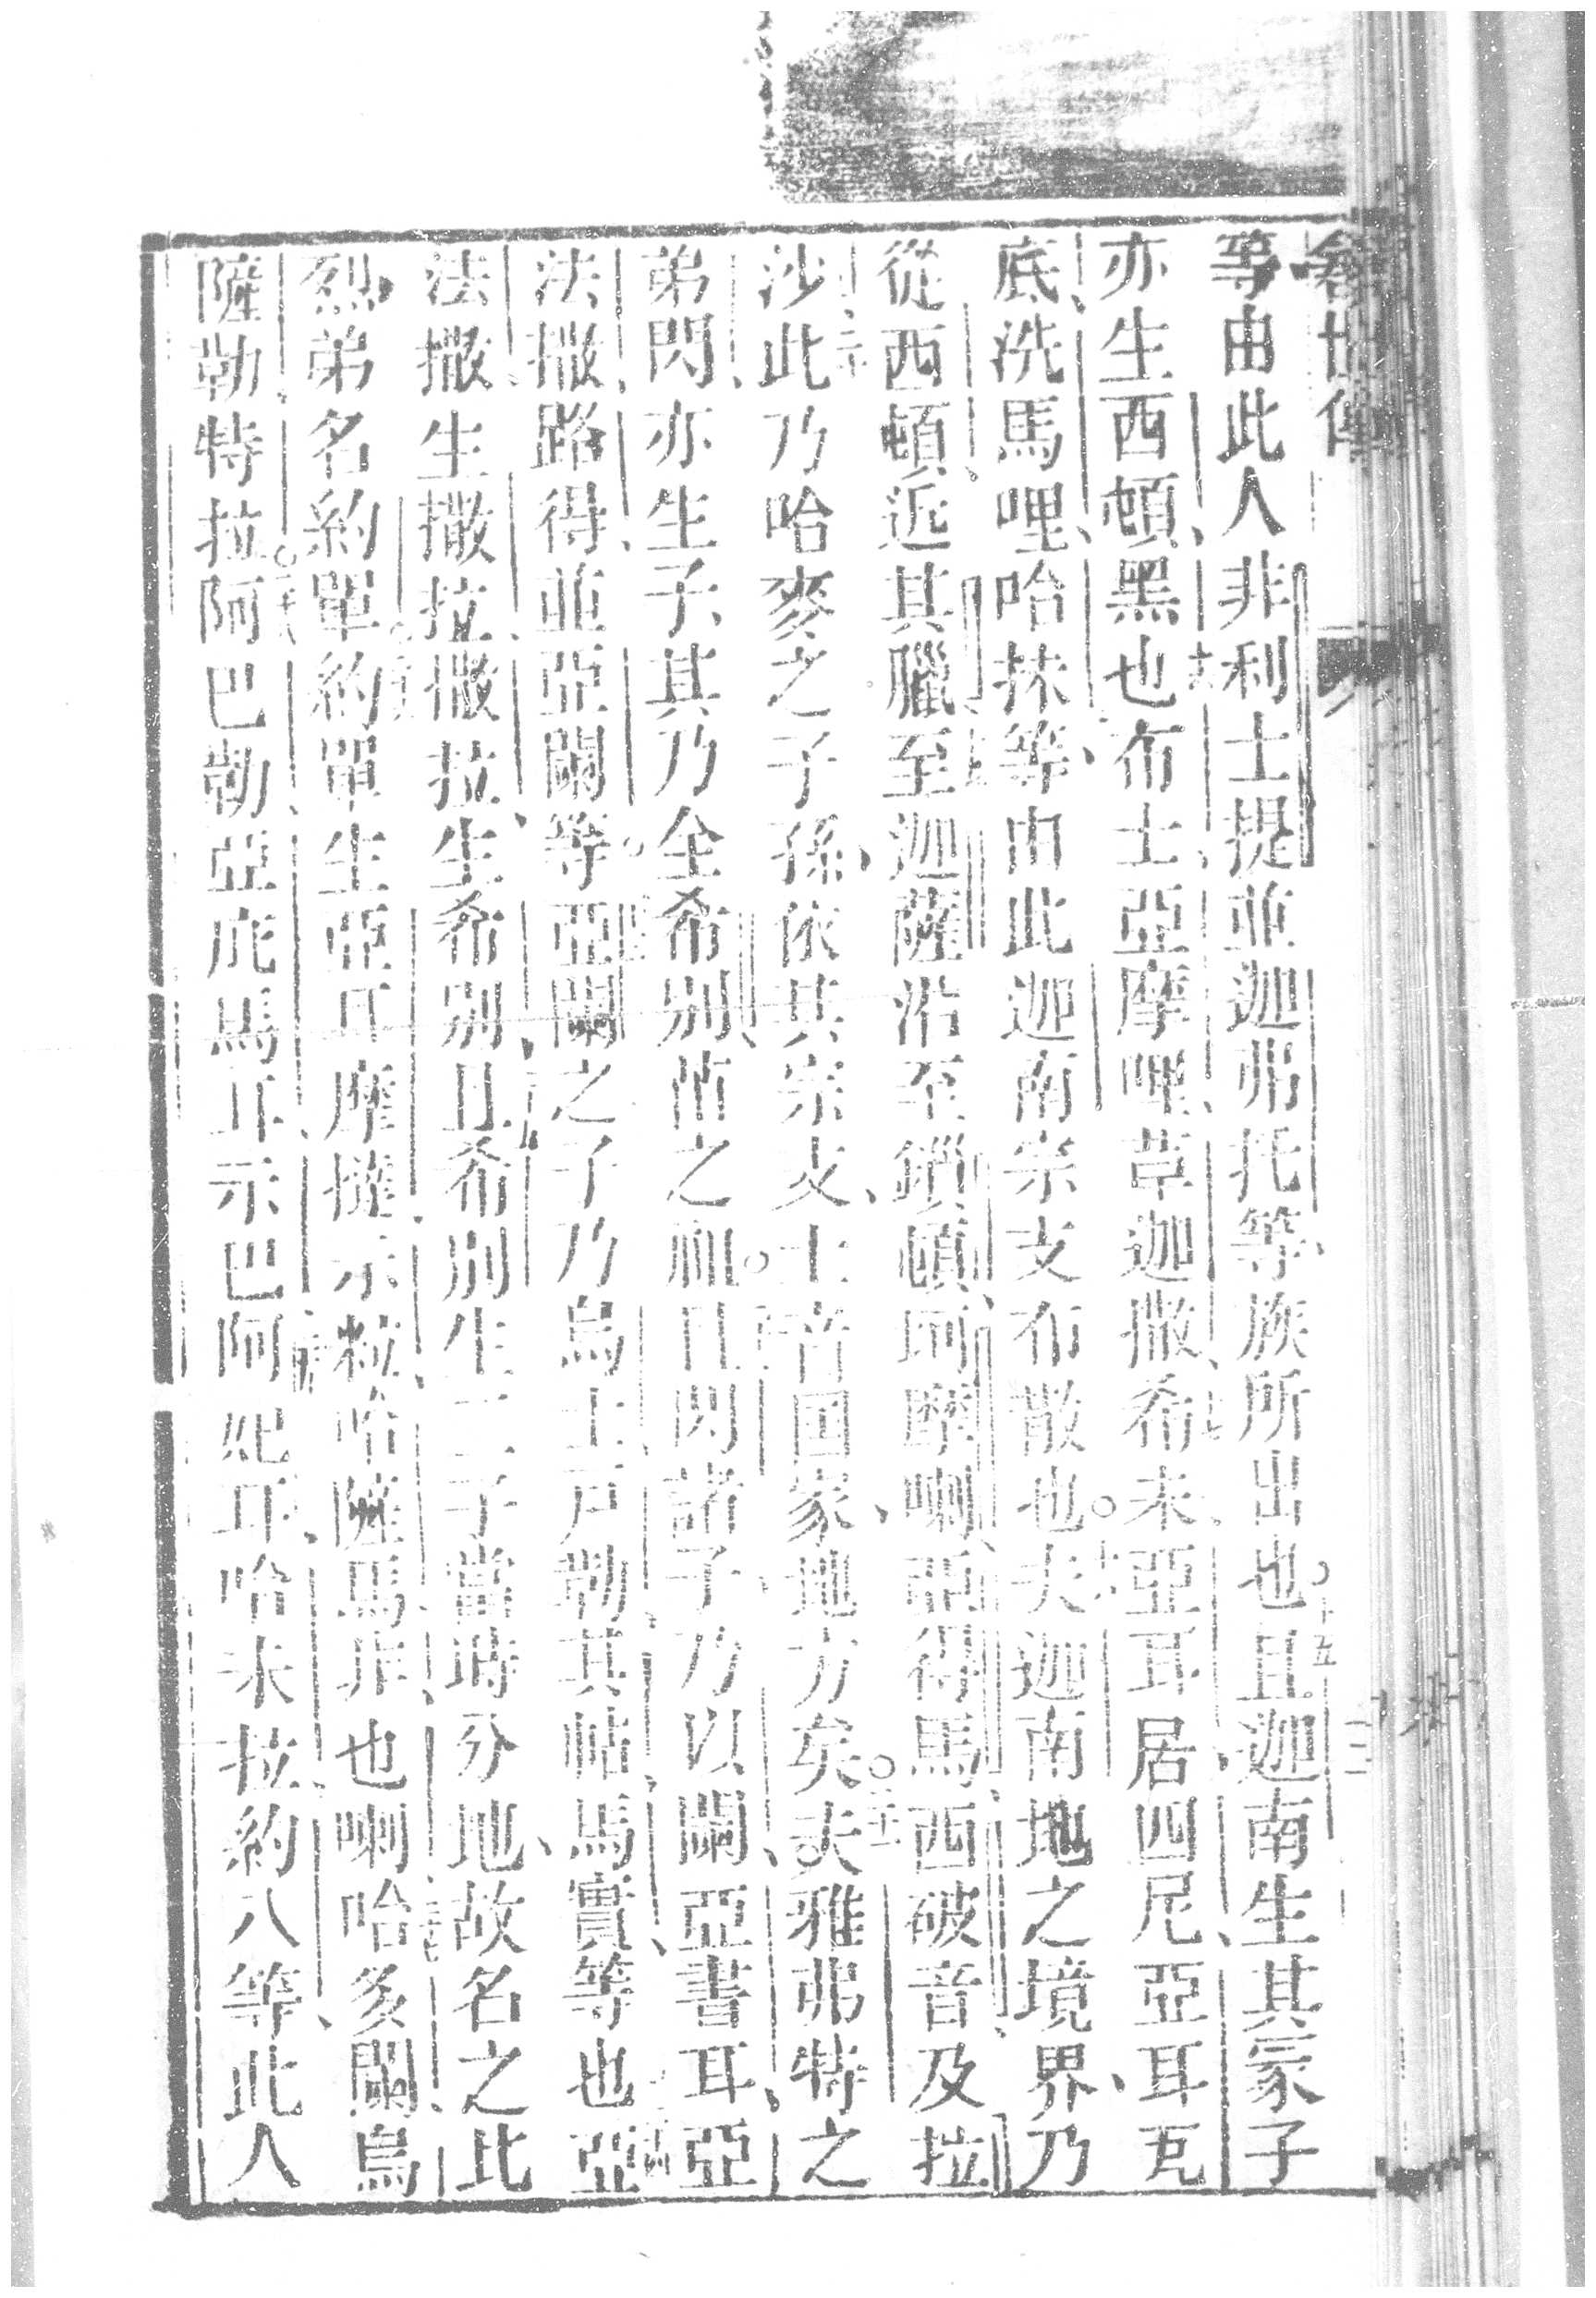 等由此人非利士提並迦弗托等族所出也且迦南生其冢子
亦生西頓黑也布士亞摩哩革迦撒希未亞耳居四尼亞耳瓦
底洗馬哩哈抹等由此迦南宗支布散也夫迦南地之境界乃
從西頓近其臘至迦薩沿至鎖頓阿摩喇亞得馬西破音及拉
沙此乃哈麥之子孫依其宗支土音国家地方矣夫雅弗特之
弟閃亦生子其乃全希別倍之祖且閃諸子乃以闌亞書耳亞
法撒路得並亞闌等亞闌之子乃烏士戶勒其帖馬實等也亞
法撒生撒拉撒拉生希別且希別生二子當時分地故名之此
烈弟名約單約單生亞耳摩撻示粒哈薩馬非也喇哈多闌烏
薩勒特拉阿巴勒亞庇馬耳示巴阿妃耳哈未拉約八等此人